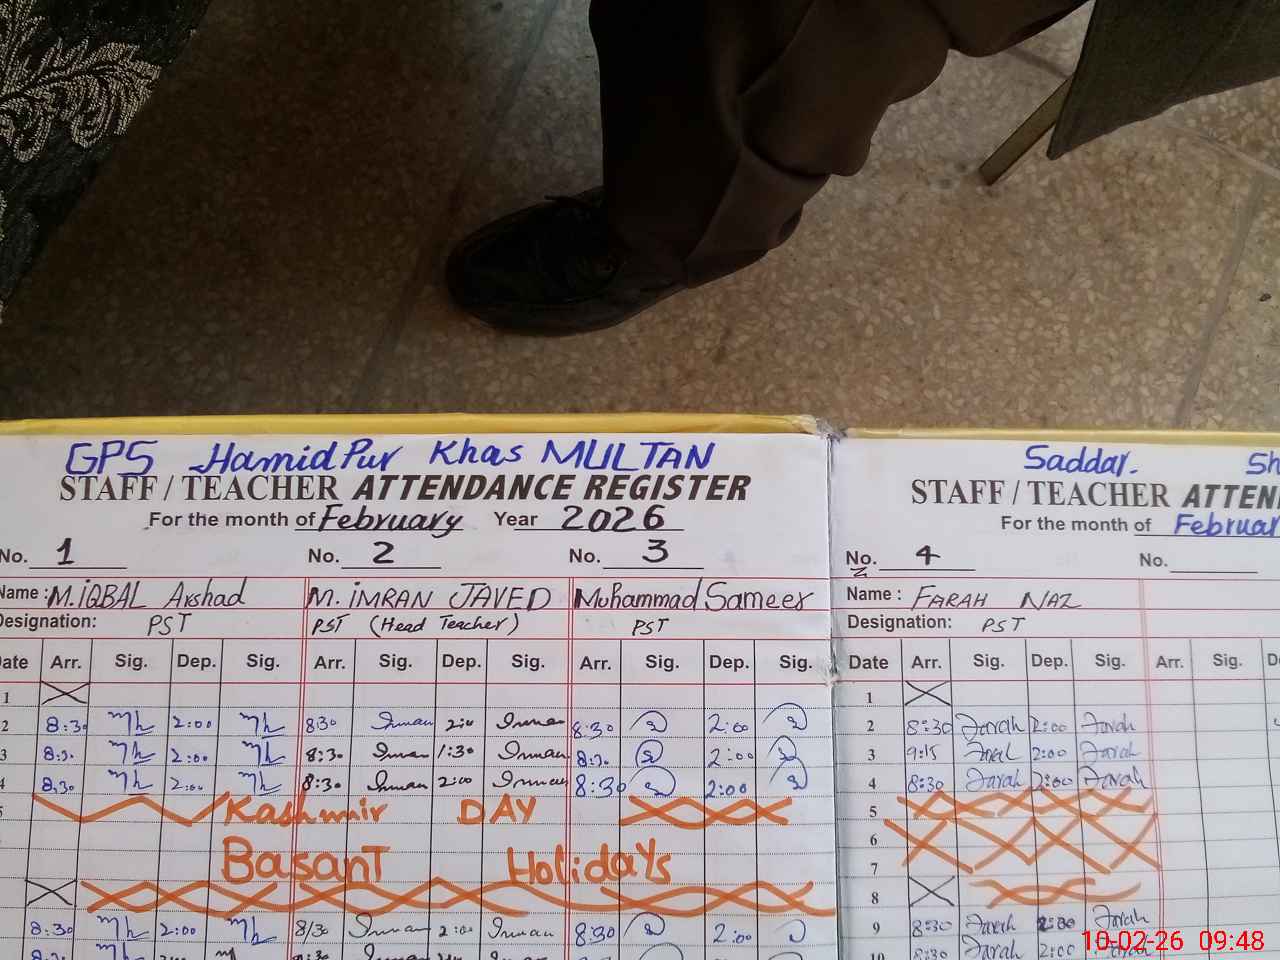 GPS HamidPur Khas MULTAN
STAFF / TEACHER ATTENDANCE REGISTER
For the month of February Year 2026
No. 1 No. 2 No. 3
Name : M.iQBAL Arshad M. iMRAN JAVED Muhammad Sameer
Designation: PST PST (Head Teacher) PST
Date Arr. Sig. Dep. Sig. Arr. Sig. Dep. Sig. Arr. Sig. Dep. Sig.
1
2 8:30 2:00 830 Imran 2:00 Imran 8:30 2:00
3 8:30 2:00 8:30 Imran 1:30 Imran 8:30 2:00
4 8:30 2:00 8:30 Imran 2:00 Imran 8:30 2:00
5 Kashmir DAY
Basant Holidays
8:30 2:00 8/30 Imran 2:00 Imran 8:30 2:00
Saddar.
STAFF / TEACHER
For the month of February
No. 4 No.
Name : FARAH NAZ
Designation: PST
Date Arr. Sig. Dep. Sig. Arr. Sig.
1
2 8:30 Farah 2:00 Farah
3 9:15 Farah 2:00 Farah
4 8:30 Farah 2:00 Farah
5
6
7
8
9 8:30 Farah 2:00 Farah
10 8:30 Farah 2:00
10-02-26 09:48